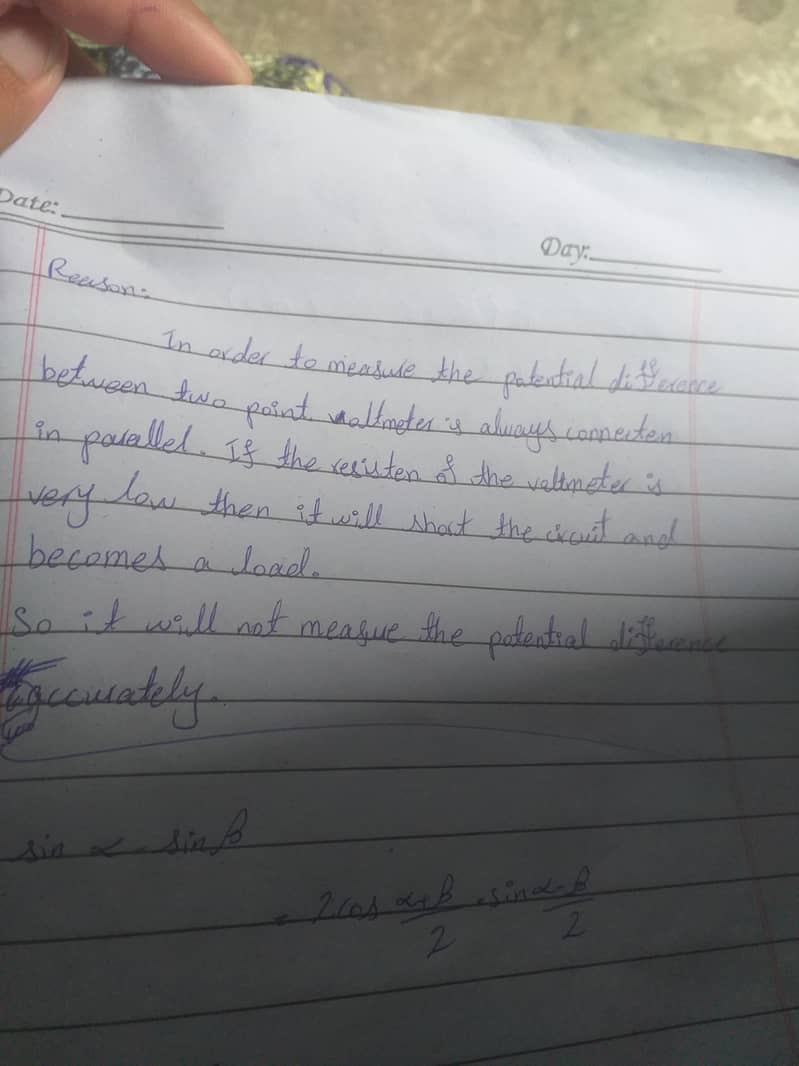 Date:
Day:
Reason:
In order to measure the potential difference
between two point voltmeter is always connecten
in parallel. If the resisten of the voltmeter is
very low then it will short the circuit and
becomes a load.
So it will not measue the potential difference
accurately.
sin α - sin β
= 2 cos α+β/2 . sin α-β/2